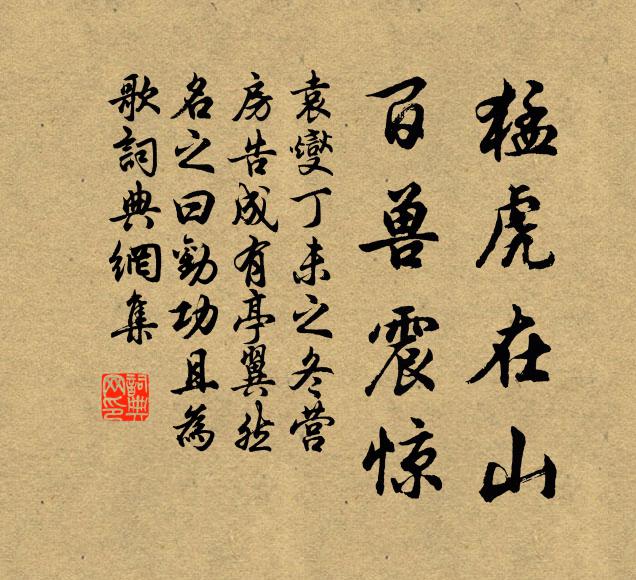 猛虎在山
百兽震惊
袁燮丁未之冬营
房告成有亭翼然
名之曰劝功且为
歌词典網集
詞典
网印